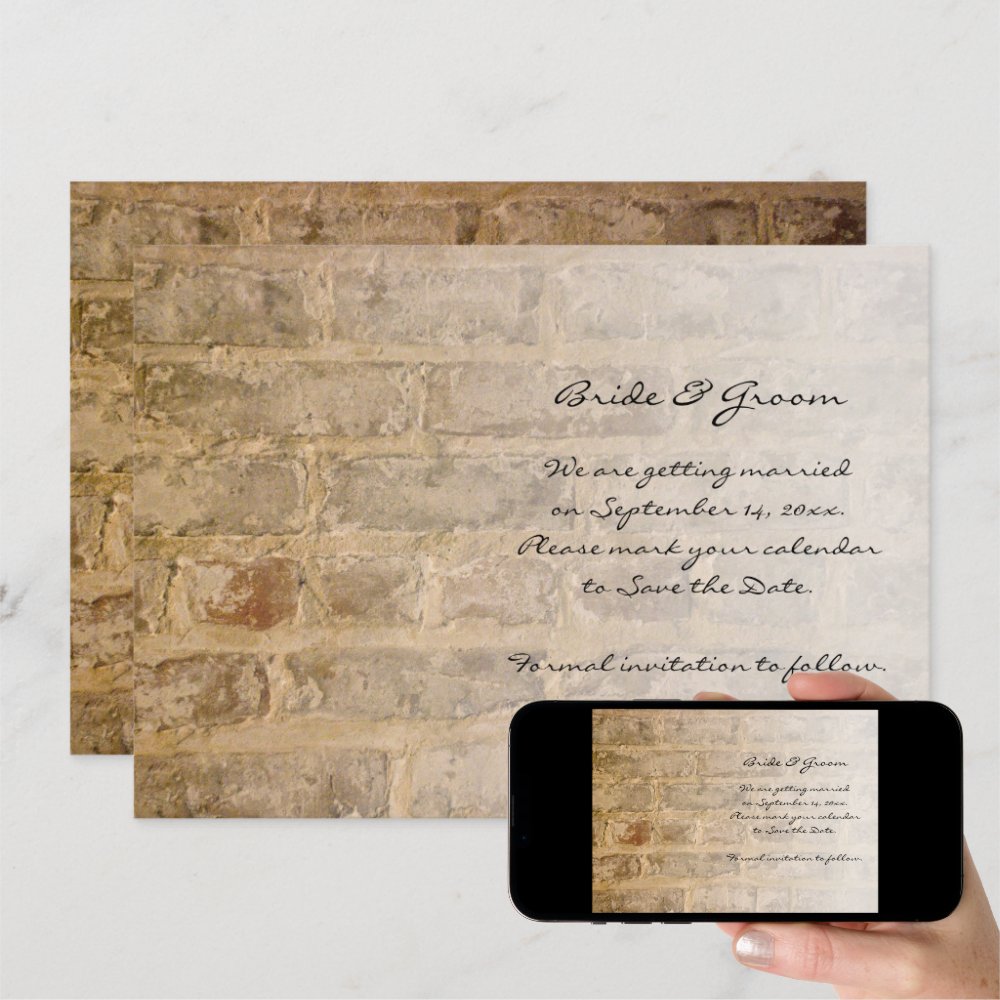 Bride & Groom
We are getting married
on September 14, 20xx.
Please mark your calendar
to Save the Date.
Formal invitation to follow.
Bride & Groom
We are getting married
on September 14, 20xx.
Please mark your calendar
to Save the Date.
Formal invitation to follow.